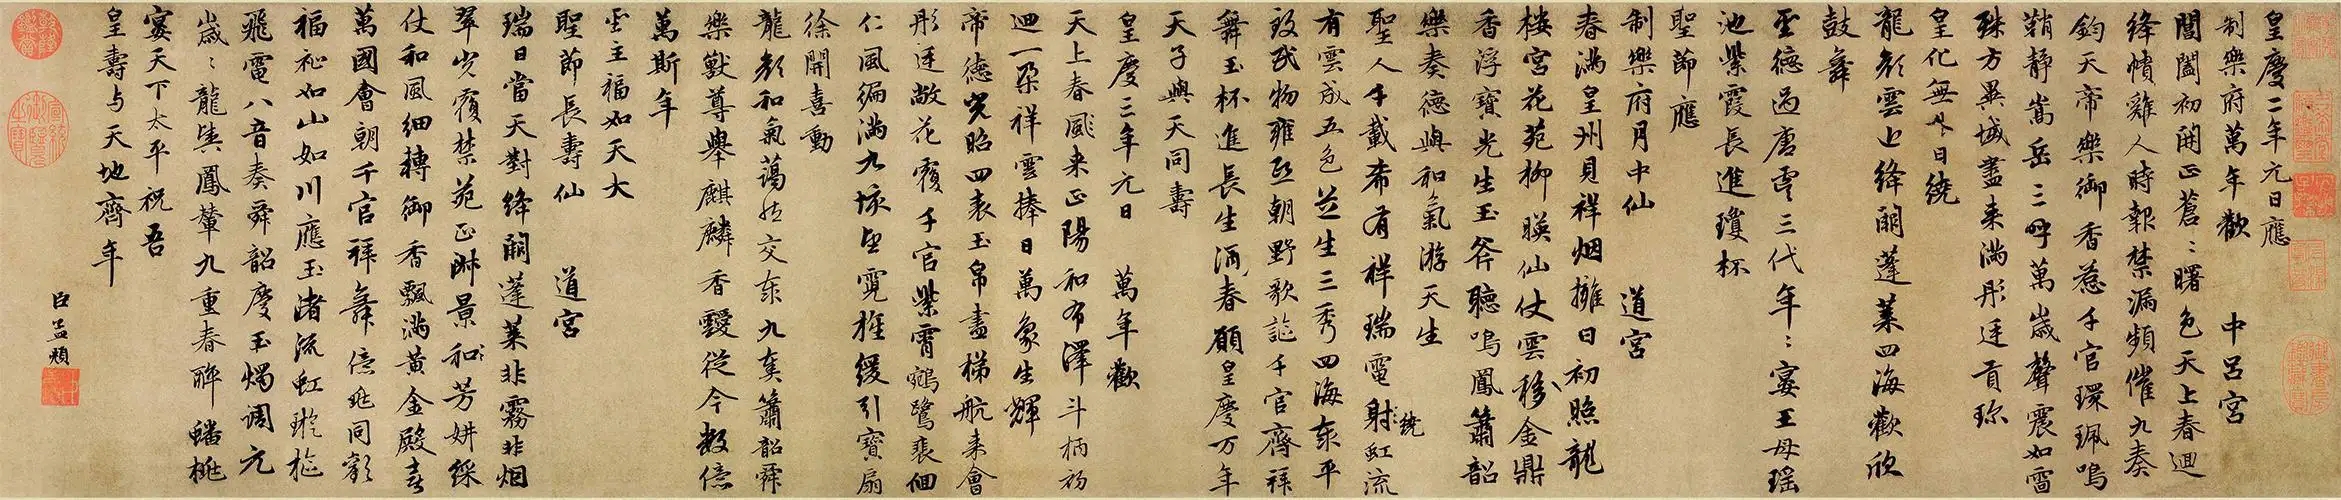 皇慶二年元日應
制樂府萬年歡　中呂宮
閶闔初開正蒼〻曙色天上春迴
絳幘雞人時報禁漏頻催九奏
鈞天帝樂御香惹千官環珮鳴
鞘靜嵩岳三呼萬歲聲震如雷
殊方異域盡來滿彤廷貢珍
皇化無外日繞
龍顏雲上絳闕蓬萊四海歡欣
鼓舞
聖德過唐虞三代年〻宴王母瑤
池紫霞長進瓊杯
聖節應
制樂府月中仙　道宮
春滿皇州見祥烟擁日初照龍
樓宮花苑柳暎仙仗雲移金鼎
香浮寶光生玉斧聽鳴鳳簫韶
樂奏德與和氣游天生
聖人千載希有祥瑞電射虹流
繞
有雲成五色芝生三秀四海泰平
致民物雍熙朝野歌謳千官齊拜
舞玉杯進長生酒春願皇慶万年
天子與天同壽
皇慶三年元日　萬年歡
天上春來正陽和布澤斗柄初
迴一朵祥雲捧日萬象生輝
帝德光昭四表玉帛盡梯航來會
彤廷敞花覆千官紫霄鵷鷺裴佪
仁風徧滿九垓望霓旌緩引寶扇
徐開喜動
龍顏和氣藹然交泰九奏簫韶舜
樂獸尊舉麒麟香靉從今數億
萬斯年
聖主福如天大
聖節長壽仙　道宮
瑞日當天對絳闕蓬萊非霧非烟
翠光覆禁苑正淑景和芳妍綵
仗和風細轉御香飄滿黃金殿喜
萬國會朝千官拜舞億兆同歡
福祉如山如川應玉渚流虹璇樞
飛電八音奏舜韶慶玉燭調元
歲〻龍輿鳳輦九重春醉蟠桃
宴天下太平祝吾
皇壽与天地齊年
臣孟頫